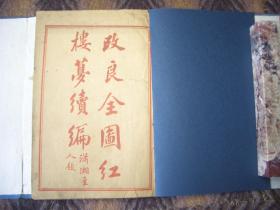 改良全圖紅
樓夢續編
瀟湘主
人題